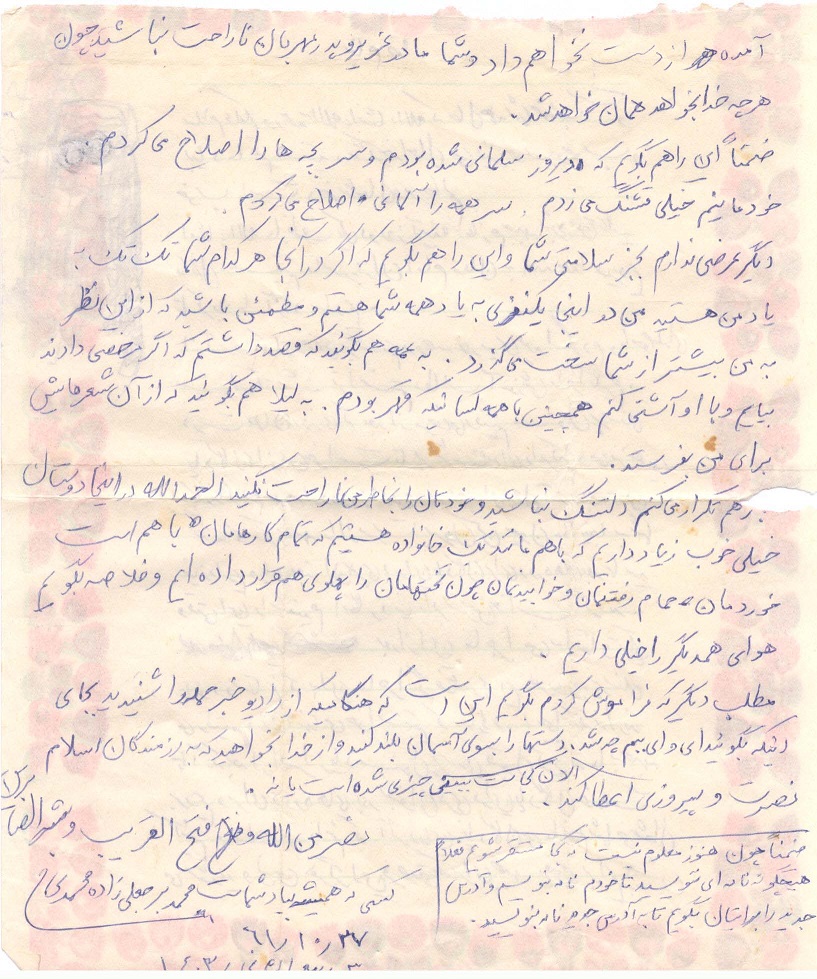 آمده از دست نخواهم داد و شما مادر عزیز و پدر مهربان ناراحت نباشید چون
هرچه خدا بخواهد همان خواهد شد.
ضمناً این را هم بگویم که دیروز سلمانی شده بودم و سر بچه ها را اصلاح می کردم.
خودمانیم خیلی قشنگ می زدم. سر همه را آلمانی اصلاح می کردم
دیگر عرضی ندارم بجز سلامتی شما و این را هم بگویم که اگر در آنجا هر کدام شما تک تک به
یاد من هستید من در اینجا یکنفری به یاد همه شما هستم و مطمئن باشید که از این نظر
به من بیشتر از شما سخت می گذرد. به عمه هم بگوئید که قصد داشتم که اگر مرخصی دادند
بیایم و با او آشتی کنم همچنین با همه کسانیکه قهر بودم. به لیلا هم بگوئید که از آن شعرهایش
برای من بفرستد.
بازهم تکرار می کنم دلتنگ نباشید و خودتان را بخاطر من ناراحت نکنید الحمدالله در اینجا دوستان
خیلی خوب زیاد داریم که باهم مانند یک خانواده هستیم که تمام کارهامان با هم است
خوردمان حمام رفتنمان و خوابیدنمان چون تختهامان را پهلوی هم قرار داده ایم و خلاصه بگویم
هوای همدیگر را خیلی داریم.
مطلب دیگر که فراموش کردم بگویم این است که هنگامیکه از رادیو خبر حمله را شنیدید بجای
اینکه بگوئید ای وای ببم چه شد. دستها را بسوی آسمان بلند کنید و از خدا بخواهید که به رزمندگان اسلام
نصرت و پیروزی اعطا کند الان کجاست ببینی چیزی شده است یا نه.
نصر من الله و فتح القریب و بشر الصابرین
کسی که همیشه بیاد شماست محمد
۶۱/۱۰/۲۷
ضمناً چون هنوز معلوم نیست که کجا مستقر شویم فعلاً
هیچگونه نامه ای ننویسید تا خودم نامه بنویسم و آدرس
جدید را برایتان بگویم تا به آدرس جدید نامه بنویسید.